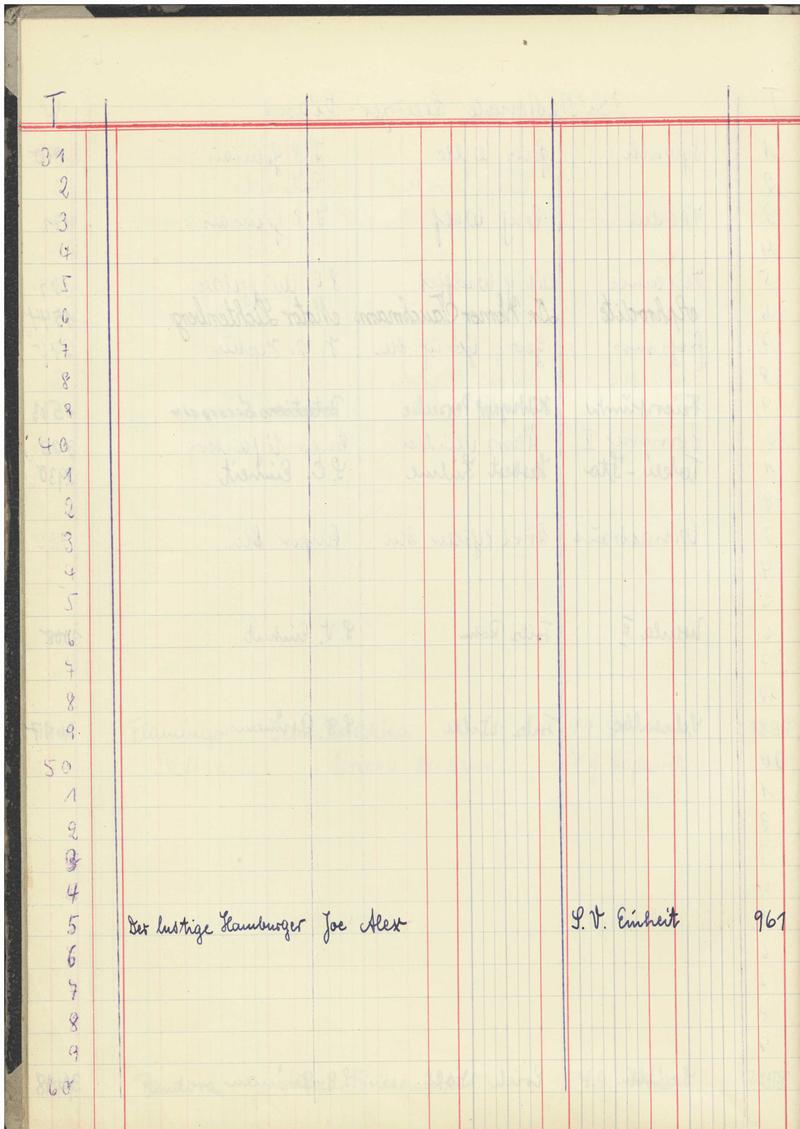 T
31
2
3
4
5
6
7
8
9
40
1
2
3
4
5
6
7
8
9
50
1
2
3
4
5 Der lustige Hamburger Joe Alex S. V. Einheit 961
6
7
8
9
60